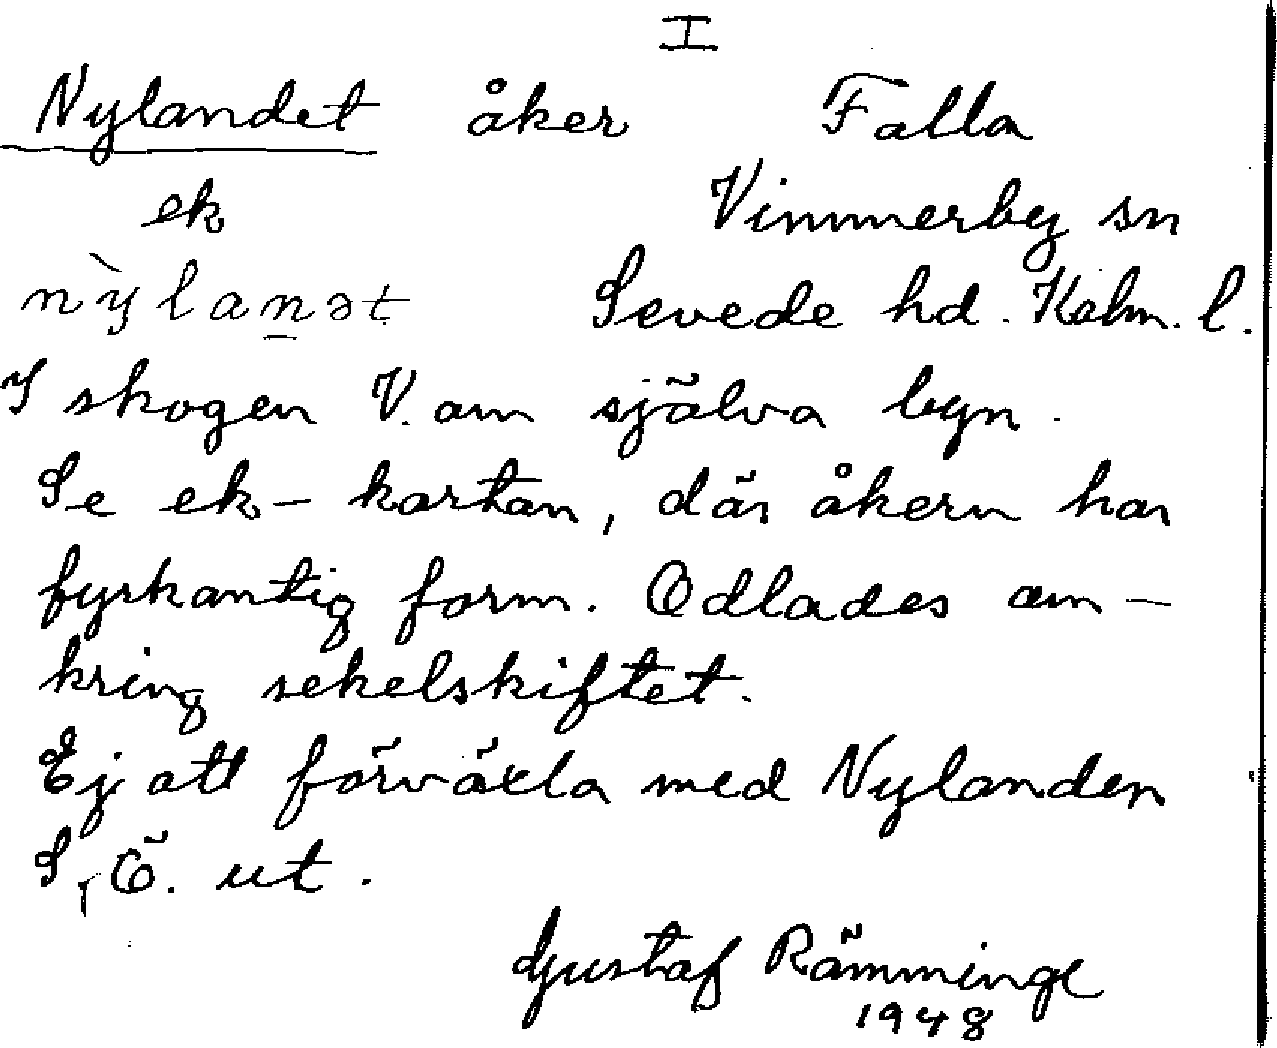 I
Nylandet åker Falla
ek Vimmerby sn
nỳlan̲ət Sevede hd. Kalm. l.
I skogen V. om själva byn.
Se ek-kartan, där åkern har
fyrkantig form. Odlades om-
kring sekelskiftet.
Ej att förväxla med Nylanden
S, Ö. ut.
Gustaf Rämminge
1948